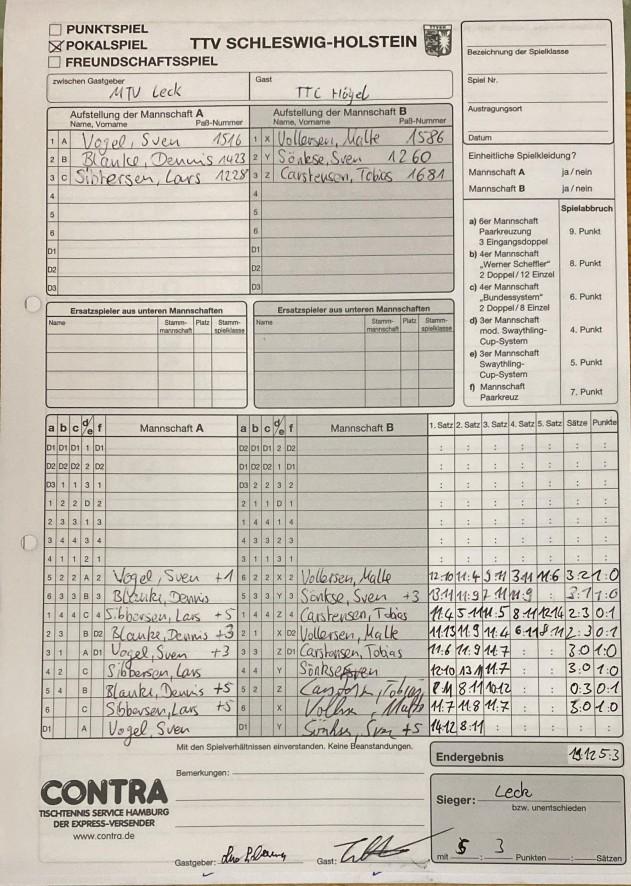 PUNKTSPIEL
POKALSPIEL
FREUNDSCHAFTSSPIEL
TTV SCHLESWIG-HOLSTEIN
Bezeichnung der Spielklasse
Spiel Nr.
Austragungsort
Datum
zwischen Gastgeber MTV Leck
Gast TTC Högel
Aufstellung der Mannschaft A
Name, Vorname Paß-Nummer
1 A Vogel, Sven 1516
2 B Blanke, Dennis 1423
3 C Sibbersen, Lars 1228
4
5
6
D1
D2
D3
Aufstellung der Mannschaft B
Name, Vorname Paß-Nummer
1 X Vollersen, Malte 1586
2 Y Sönkse, Sven 1260
3 Z Carstensen, Tobias 1681
4
5
6
D1
D2
D3
Einheitliche Spielkleidung?
Mannschaft A ja / nein
Mannschaft B ja / nein
Spielabbruch
a) 6er Mannschaft
Paarkreuzung 9. Punkt
3 Eingangsdoppel
b) 4er Mannschaft
„Werner Scheffler“ 8. Punkt
2 Doppel / 12 Einzel
c) 4er Mannschaft
„Bundessystem“ 6. Punkt
2 Doppel / 8 Einzel
d) 3er Mannschaft
mod. Swaythling- 4. Punkt
Cup-System
e) 3er Mannschaft
Swaythling- 5. Punkt
Cup-System
f) Mannschaft
Paarkreuz 7. Punkt
Ersatzspieler aus unteren Mannschaften
Name Stamm-mannschaft Platz Stamm-spielklasse
Ersatzspieler aus unteren Mannschaften
Name Stamm-mannschaft Platz Stamm-spielklasse
a b c d/e f Mannschaft A a b c d/e f Mannschaft B 1. Satz 2. Satz 3. Satz 4. Satz 5. Satz Sätze Punkte
D1 D1 D1 1 D1 D2 D1 D1 2 D2
D2 D2 D2 2 D2 D1 D2 D2 1 D1
D3 1 1 3 1 D3 2 2 3 2
1 2 2 D 2 2 1 1 D 1
2 3 3 1 3 1 4 4 1 4
3 4 4 3 4 4 3 3 2 3
4 1 1 2 1 3 1 1 3 1
5 2 2 A 2 Vogel, Sven +1 6 2 2 X 2 Vollersen, Malte 12:10 11:4 9:11 3:11 11:6 3:2 1:0
6 3 3 B 3 Blanke, Dennis 5 3 3 Y 3 Sönkse, Sven +3 13:11 11:9 7:11 11:9 3:1 1:0
1 4 4 C 4 Sibbersen, Lars +5 1 4 4 Z 4 Carstensen, Tobias 11:4 5:11 11:5 8:11 12:14 2:3 0:1
2 3 B D2 Blanke, Dennis +3 2 1 X D2 Vollersen, Malte 11:13 11:9 11:4 6:11 8:11 2:3 0:1
3 1 A D1 Vogel, Sven +3 3 3 Z D1 Carstensen, Tobias 11:6 11:9 11:7 3:0 1:0
4 2 C Sibbersen, Lars 4 4 Y Sönksen 12:10 13:11 11:7 3:0 1:0
5 4 B Blanke, Dennis +5 5 2 Z Carstensen, Tobias 8:11 8:11 10:12 0:3 0:1
6 C Sibbersen, Lars +5 6 X Vollersen, Malte 11:7 11:8 11:7 3:0 1:0
D1 A Vogel, Sven D1 Y Sönkse, Sven +5 14:12 8:11
Mit den Spielverhältnissen einverstanden. Keine Beanstandungen.
Endergebnis 5:3
CONTRA
TISCHTENNIS SERVICE HAMBURG
DER EXPRESS-VERSENDER
www.contra.de
Bemerkungen:
Sieger: Leck
bzw. unentschieden
mit 5 : 3 Punkten : Sätzen
Gastgeber:
Gast: